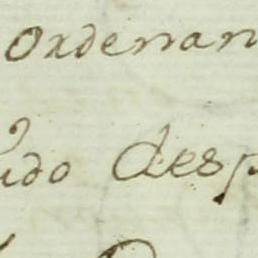 Ordenan
udo desp